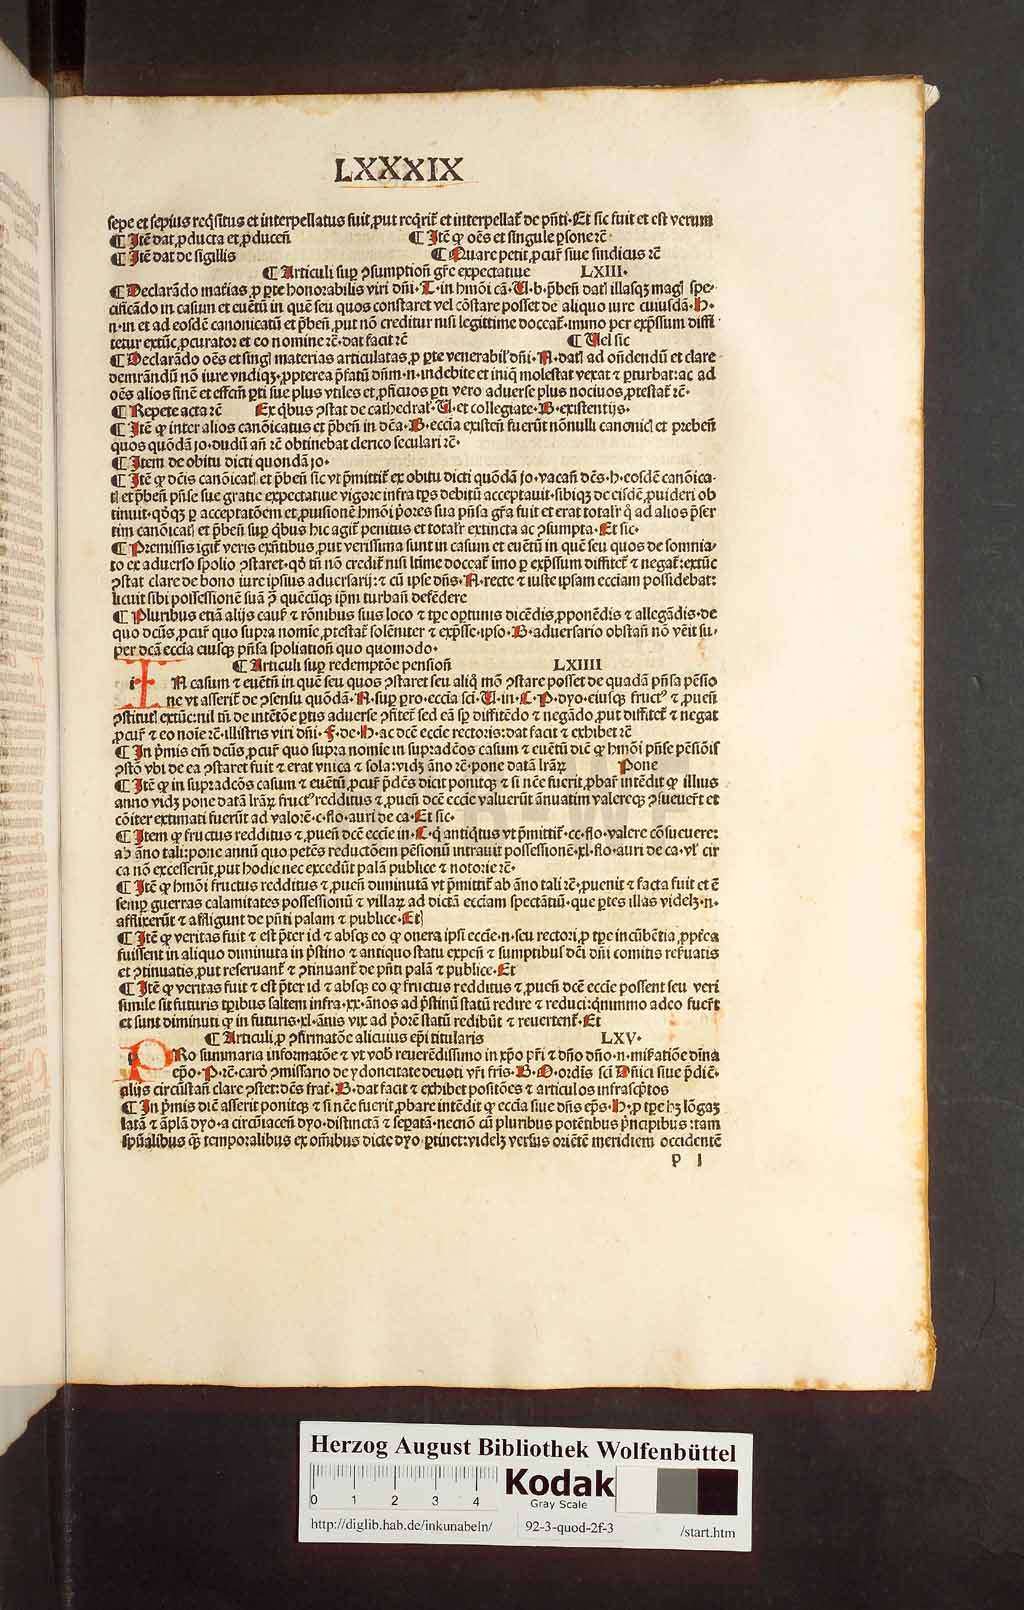 LXXXIX
sepe et sepius reqͥsitus et interpellatus fuit ꝓut reqͥrit᷑ et interpellat᷑ de pn̄ti. Et sic fuit et est verum
¶ Itē dat ꝓducta et ꝓducen̄ ¶ Itē ꝙ oēs et singule ꝑsone ⁊c̄
¶ Itē dat de sigillis ¶ Quare petit ꝓcur᷑ siue sindicus ⁊c̄
¶ Articuli suꝑ ꝯsumption̄ gr̄e expectatiue LXIII.
¶ Declarādo mat̄ias ꝓ ꝑte honorabilis viri dn̄i. T. in hmōi cā. U. b. p̄ben̄ datꝭ illasqꝫ magꝭ spe
cificādo in casum et euētū in quē seu quos constaret vel cōstare posset de aliquo iure cuiusdā. H.
n. in et ad eosdē canonicatū et p̄ben̄ ꝓut nō creditur nisi legittime doceat᷑. immo per exp̄ssum diffi
tetur extūc ꝓcurator et eo nomine ⁊c̄. dat facit ⁊c̄ ¶ Uel sic
¶ Declarādo oēs et singꝭ materias articulatas ꝓ ꝑte venerabil᷑ dn̄i. A. datꝭ ad on̄dendū et clare
demrāndū nō iure vndiqꝫ ꝓpterea p̄fatū dn̄m. n. indebite et iniq̄ molestat vexat ⁊ ꝑturbat: ac ad
oēs alios finē et effcm̄ ꝑti sue plus vtiles et ꝓficuos ꝑti vero aduerse plus nociuos ꝓtestat᷑ ⁊c̄.
¶ Repete acta ⁊c̄ Ex qͥbus ꝯstat de cathedral᷑. U. et collegiate. B. existentijs.
¶ Itē ꝙ inter alios canōicatus et p̄ben̄ in dc̄a. B. ecc̄ia existen̄ fuerūt nōnulli canonicꝭ et preben̄
quos quōdā jo. dudū an̄ ⁊c̄ obtinebat clerico seculari ⁊c̄.
¶ Item de obitu dicti quondā jo.
¶ Itē ꝙ dc̄is canōicatꝭ et p̄ben̄ sic vt p̄mittit᷑ ex obitu dicti quōdā jo. vacan̄ dc̄s. h. eosdē canōica
tꝭ et p̄ben̄ pn̄se sue gratie expectatiue vigore infra tꝑs debitū acceptauit. sibiqꝫ de eisdē ꝓuideri ob
tinuit. qōqꝫ ꝑ acceptatōem et ꝓuisionē hmōi p̄ores sua pn̄sa gr̄a fuit et erat totalr̄ q̄ ad alios p̄ser
tim canōicatꝭ et p̄ben̄ suꝑ qͥbus hic agit᷑ penitus et totalr̄ extincta ac ꝯsumpta. Et sic.
¶ Premissis igit᷑ veris exn̄tibus ꝓut verissima sunt in casum et euētū in quē seu quos de somnia
to ex aduerso spolio ꝯstaret. qō tn̄ nō credit᷑ nisi ltīme doceat᷑ imo ꝑ exp̄ssum diffitet᷑ ⁊ negat᷑: extūc
ꝯstat clare de bono iure ipsius aduersarij: ⁊ cū ipse dn̄s. A. recte ⁊ iuste ipsam ecc̄iam possidebat:
licuit sibi possessionē suā ꝯ̄ quēcūqꝫ ip̄m turban̄ defēdere
¶ Pluribus etiā alijs caus᷑ ⁊ rōnibus suis loco ⁊ tꝑe optimis dicēdis ꝓponēdis ⁊ allegādis. de
quo dc̄us ꝓcur᷑ quo supra nomīe ꝓtestat᷑ solēniter ⁊ exp̄sse. ipso. B. aduersario obstan̄ nō vēit su
per dc̄a ecc̄ia eiusqꝫ pn̄sa spoliation̄ quo quomodo.
¶ Articuli suꝑ redemptōe pension̄ LXIIII
IN casum ⁊ euētū in quē seu quos ꝯstaret seu aliq̄ mō ꝯstare posset de quadā pn̄sa pēsio
ne vt asserit᷑ de ꝯsensu quōdā. A. suꝑ ꝓro. ecc̄ia sc̄i. U. in. C. P. dyo. eiusqꝫ fruct᷒ ⁊ ꝓuen̄
ꝯstitutꝭ extūc: nil tn̄ de intētōe ꝑtis aduerse ꝯfitet᷑ sed eā sꝑ diffitēdo ⁊ negādo ꝓut diffitet᷑ ⁊ negat
ꝓcur᷑ ⁊ eo noīe ⁊c̄. illistris viri dn̄i. F. de. H. ac dc̄e ecc̄ie rectoris: dat facit ⁊ exhibet ⁊c̄
¶ In p̄mis em̄ dc̄us ꝓcur᷑ quo supra nomīe in supradc̄os casum ⁊ euētū dic̄ ꝙ hmōi pn̄se pēsiōis
ꝯstō vbi de ea ꝯstaret fuit ⁊ erat vnica ⁊ sola: vidꝫ āno ⁊c̄. pone datā lr̄aꝝ Pone
¶ Itē ꝙ in supradc̄os casum ⁊ euētū ꝓcur᷑ p̄dc̄s dicit ponitqꝫ ⁊ si nc̄e fuerit ꝓbar᷑ intēdit ꝙ illius
anno vidꝫ pone datā lr̄aꝝ fruct᷒ redditus ⁊ ꝓuen̄ dc̄e ecc̄ie valuerūt ānuatim valereqꝫ ꝯsueuer̄t et
cōiter extimati fuerūt ad valorē. c. flo. auri de ca. Et sic.
¶ Item ꝙ fructus redditus ⁊ ꝓuen̄ dc̄e ecc̄ie in. C. q̄ antiqͥtus vt p̄mittit᷑. cc. flo. valere cōsueuere:
ab āno tali: pone annū quo petēs reductōem pēsionū intrauit possessionē. xl. flo. auri de ca. vl᷑ cir
ca nō excesserūt ꝓut hodie nec excedūt palā publice ⁊ notorie ⁊c̄.
¶ Itē ꝙ hmōi fructus redditus ⁊ ꝓuen̄ diminutā vt p̄mittit᷑ ab āno tali ⁊c̄ ꝓuenit ⁊ facta fuit et ē
semꝑ guerras calamitates possessionū ⁊ villaꝝ ad dictā ecc̄iam spectātiū. que ꝑtes illas videlꝫ. n.
afflixerūt ⁊ affligunt de pn̄ti palam ⁊ publice. Etꝭ
¶ Itē ꝙ veritas fuit ⁊ est p̄ter id ⁊ absqꝫ eo ꝙ onera ipsi ecc̄ie. n. seu rectori ꝓ tꝑe incūbētia ꝓpt̄ea
fuissent in aliquo diminuta in p̄stino ⁊ antiquo statu expen̄ ⁊ sumptibus dc̄i dn̄i comitis ref᷑uatis
et ꝯtinuatis ꝓut reseruant᷑ ⁊ ꝯtinuant᷑ de pn̄ti palā ⁊ publice. Et
¶ Itē ꝙ veritas fuit ⁊ est p̄ter id ⁊ absqꝫ eo ꝙ fructus redditus ⁊ ꝓuen̄ dc̄e ecc̄ie possent seu veri
simile sit futuris tꝑibus saltem infra. xx. ānos ad p̄stinū statū redire ⁊ reduci: qͥnimmo adeo fuer̄t
et sunt diminuti ꝙ in futuris. xl. ānis vix ad p̄orē statū redibūt ⁊ reuertent᷑. Et
¶ Articuli ꝓ ꝯfirmatōe alicuius ep̄i titularis LXV.
PRo summaria informatōe ⁊ vt vob᷑ reuerēdissimo in xp̄o pr̄i ⁊ dn̄o dn̄o. n. mis᷑atiōe diīna
ep̄o. P. ⁊c̄. carō ꝯmissario de ydoncitate deuoti vr̄i fr̄is. B. O. ordīs sc̄i Dn̄ici siue p̄diē.
alijs circūstan̄ clare ꝯstet: dc̄s frat᷑. B. dat facit ⁊ exhibet positōes ⁊ articulos infrascp̄tos
¶ In p̄mis dic̄t asserit ponitqꝫ ⁊ si nc̄e fuerit ꝓbare intēdit ꝙ ecc̄ia siue dn̄s ep̄s. H. ꝓ tꝑe hꝫ lōgaꝫ
latā ⁊ āplā dyo. a circūiacen̄ dyo. distinctā ⁊ sep̄atā. necnō cū pluribus potētibus pͥncipibus: tam
spūalibus qꝫ temporalibus ex om̄ibus dicte dyo ꝑtinet: videlꝫ versus oriētē meridiem occidentē
p 1
Herzog August Bibliothek Wolfenbüttel
0 1 2 3 4
Kodak
Gray Scale
http://diglib.hab.de/inkunabeln/ 92-3-quod-2f-3 /start.htm